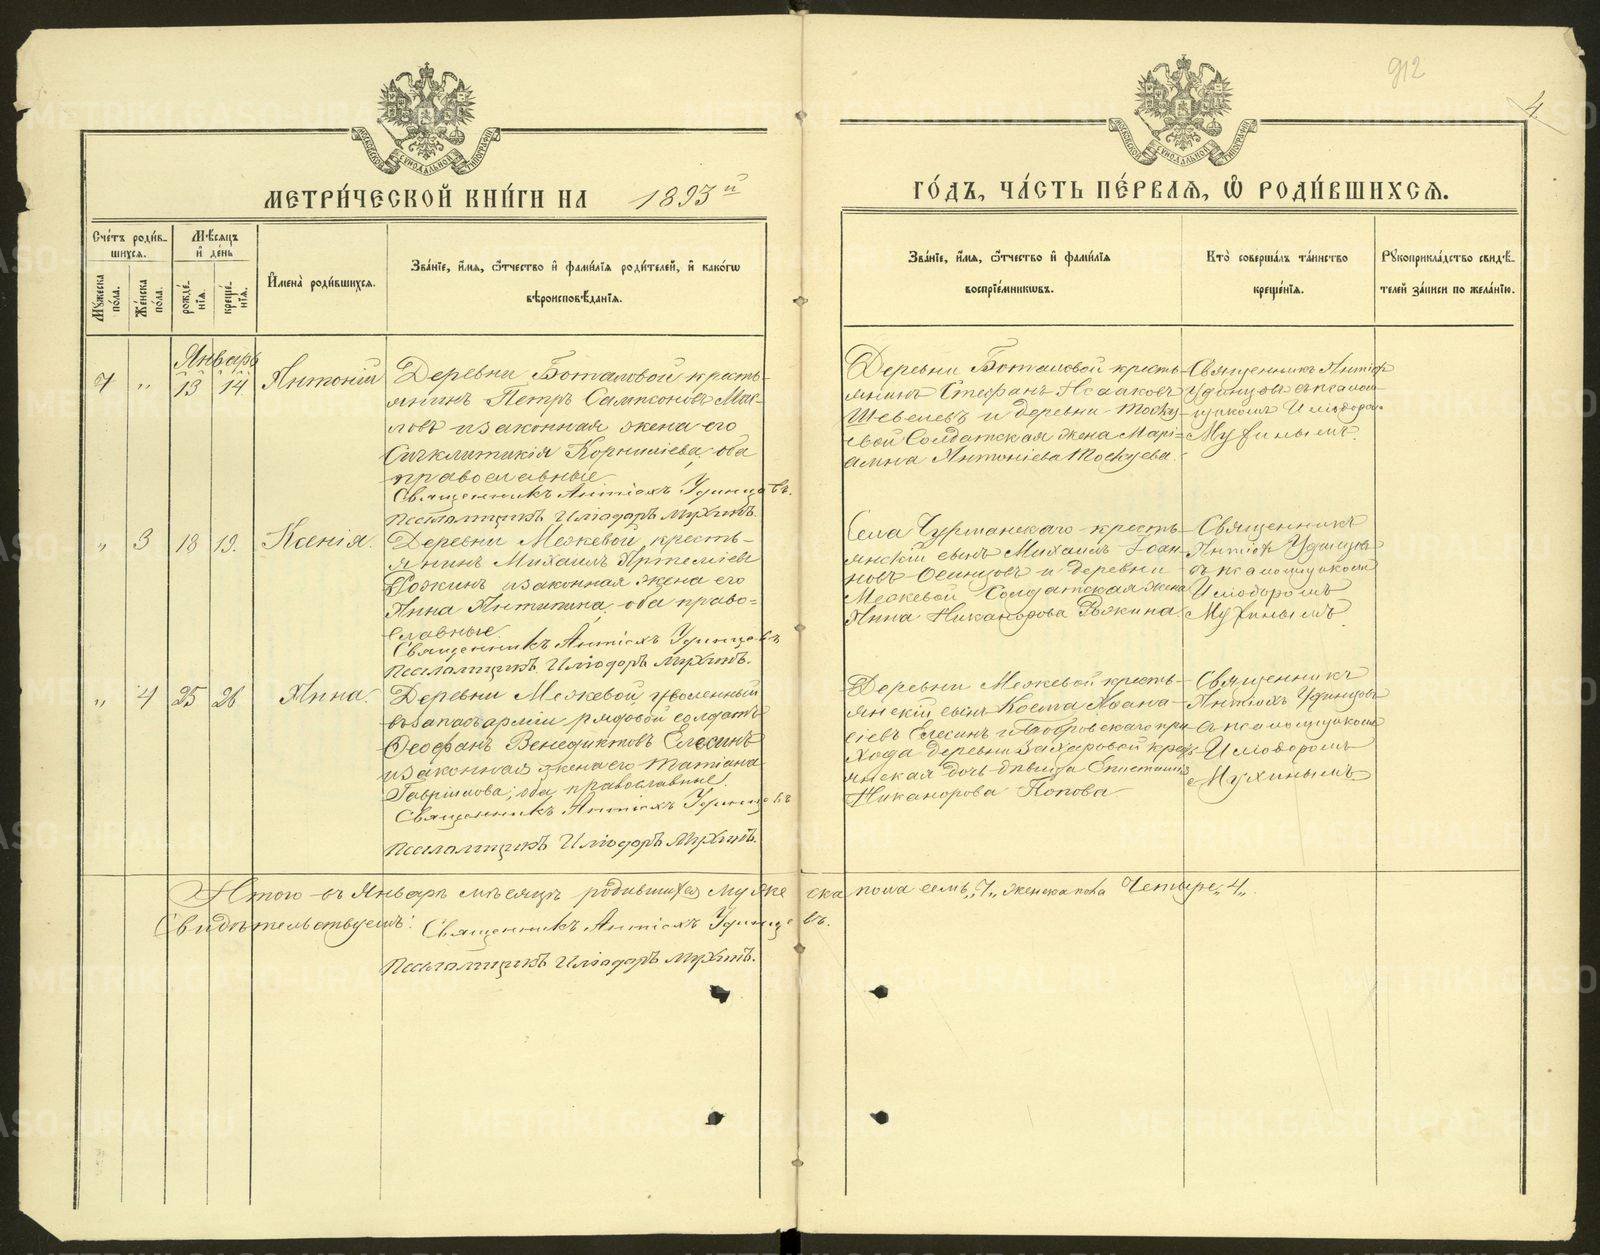 912
4
МЕТРИ́ЧЕСКОЙ КНИ́ГИ НА 1893й
ГО́ДЪ, ЧА́СТЬ ПЕ́РВАЯ, Ѡ҆ РОДИ́ВШИХСЯ.
Сче́тъ роди́в-
шихся.
Мꙋ́жеска
по́ла.
Же́нска
по́ла.
Мѣ́сяцъ
и҆ де́нь
рожде́-
нїя.
креще́-
нїя.
И҆мена̀ роди́вшихся.
Зва́нїе, и҆́мя, ѻ҆́тчество и҆ фами́лїя роди́телей, и҆ како́гѡ
вѣроисповѣ́данїя.
Зва́нїе, и҆́мя, ѻ҆́тчество и҆ фами́лїя
воспрїе́мниковъ.
Кто̀ соверша́лъ та́инство
креще́нїя.
Рꙋкоприкла́дство свидѣ́-
телей за́писи по жела́нїю.
Январь
7 " 13 14 Антоній
Деревни Боталовой кресть-
янинъ Петръ Сампсоновъ Мас-
ловъ и законная жена его
Синклитикія Корниліева, оба
православные
Священникъ Антіохъ Удинцовъ.
Псаломщикъ Иліодоръ Мухинъ.
Деревни Боталовой кресть-
янинъ Стефанъ Исааковъ
Шевелевъ и деревни
Солдатская жена Марі-
амна Антоніева
Священникъ Антіох
Удинцовъ съ псалом-
щикомъ Иліодоро-
Мухинымъ.
" 3 18 19. Ксенія.
Деревни Межевой, кресть-
янинъ Михаилъ Артеміевъ
и законная жена его
Анна Антипина, оба право-
славные.
Священникъ Антіохъ Удинцовъ
Псаломщикъ Иліодоръ Мухинъ.
Села Чурманскаго кресть-
янскій сынъ Михаилъ Іоан-
новъ Осинцовъ и деревни
Межевой Солдатская жена
Анна Никанорова
Священникъ
Антіох Удинцов
съ псаломщикомъ
Иліодоромъ
Мухинымъ.
" 4 25 26 Анна.
Деревни Межевой, уволенный
въ запасъ арміи, рядовой солдатъ
Феофанъ Венедиктовъ Елесинъ
и законная жена его Татіана
Гавріилова; оба православные.
Священникъ Антіохъ Удинцовъ
Псаломщикъ Иліодоръ Мухинъ.
Деревни Межевой кресть-
янскій сынъ Косма Афана-
сіевъ Елесинъ и Бобровскаго при-
хода деревни Захаровой кресть-
янская дочь дѣвица Епистимія
Никанорова Попова
Священникъ
Антіохъ Удинцовъ
съ псаломщикомъ
Иліодоромъ
Мухинымъ
Итого въ Январѣ мѣсяцѣ родившихся мужеска пола семь „7„ женска пола Четыре „4„.
Свидѣтельствуемъ: Священникъ Антіохъ Удинцовъ.
Псаломщикъ Иліодоръ Мухинъ.